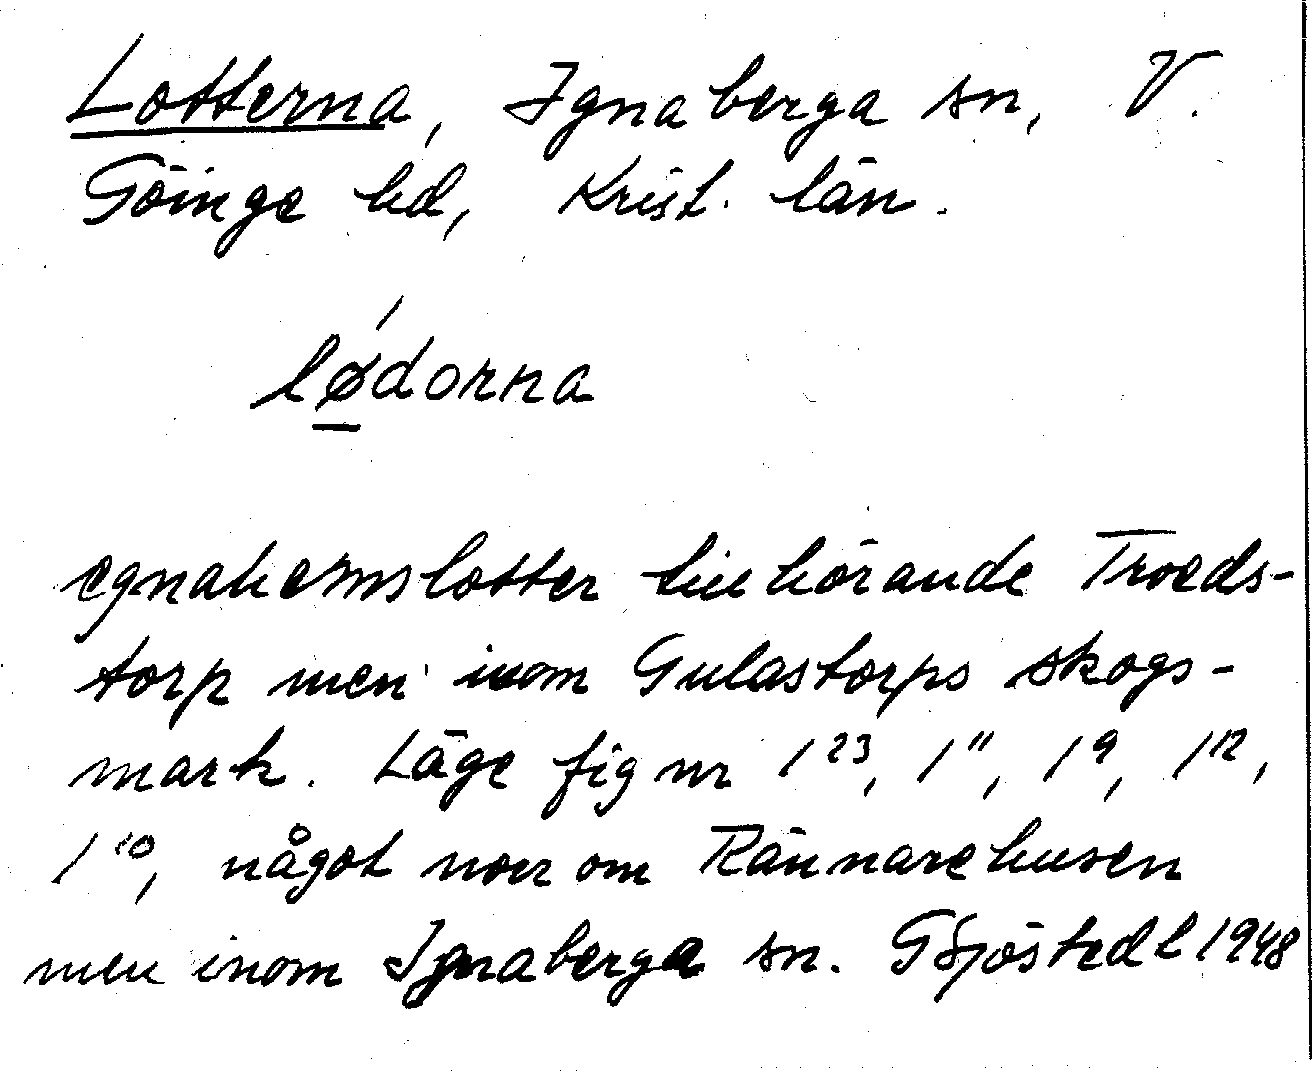 Lotterna, Ignaberga sn, V.
Göinge hd, Krist. län.
lødorna
egnahemslotter tillhörande Troeds-
torp men inom Gulastorps skogs-
mark. Läge fig nr 1²³, 1¹¹, 1⁹, 1¹²,
1¹⁰, något norr om Rännarehusen
men inom Ignaberga sn. GSjöstedt 1948